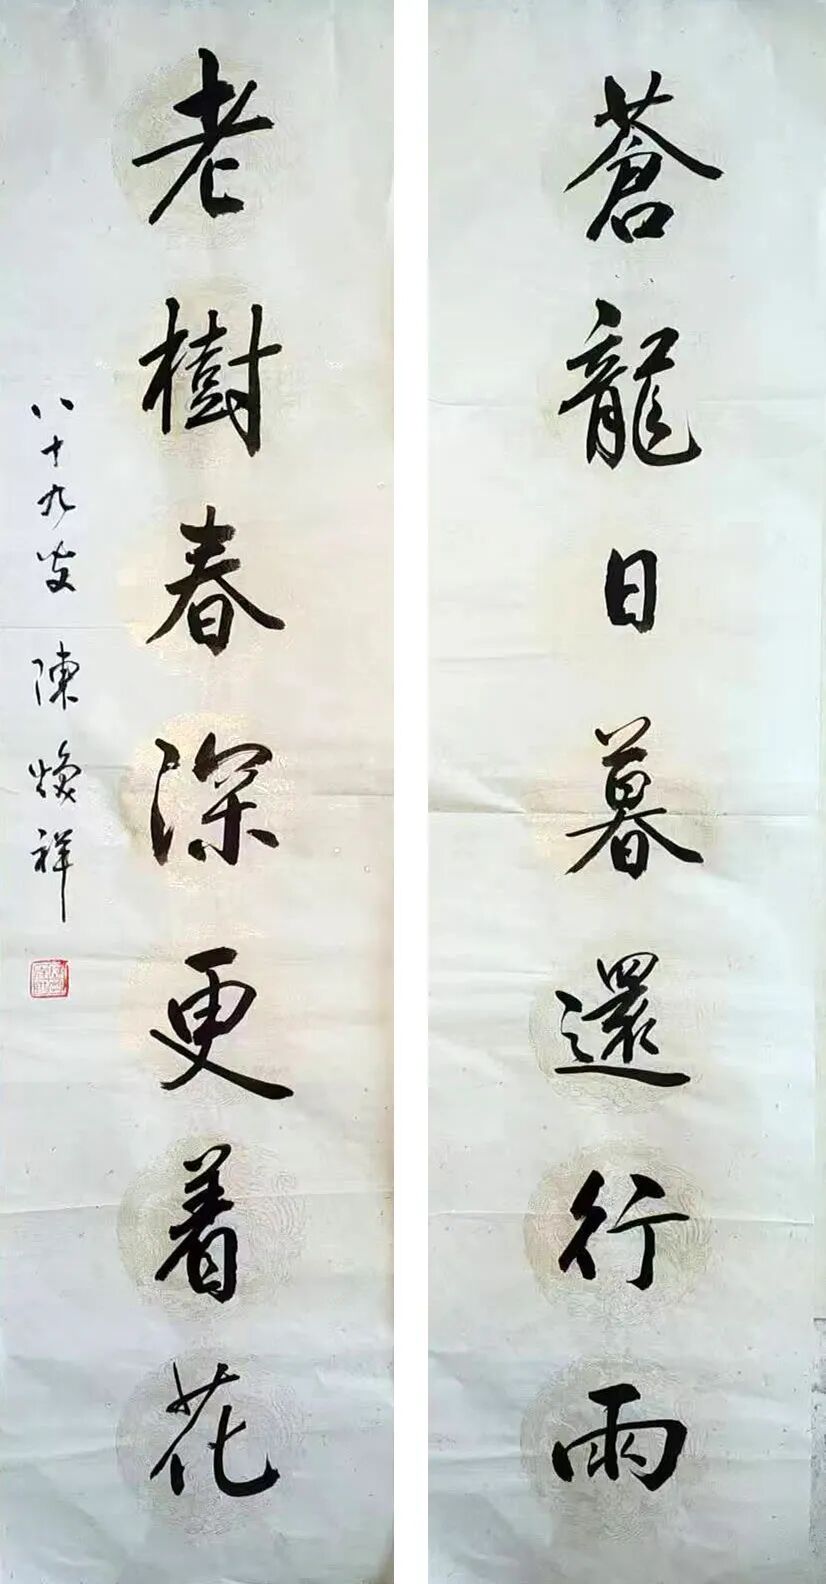 蒼龍日暮還行雨
老樹春深更着花
八十九叟 陳煥祥